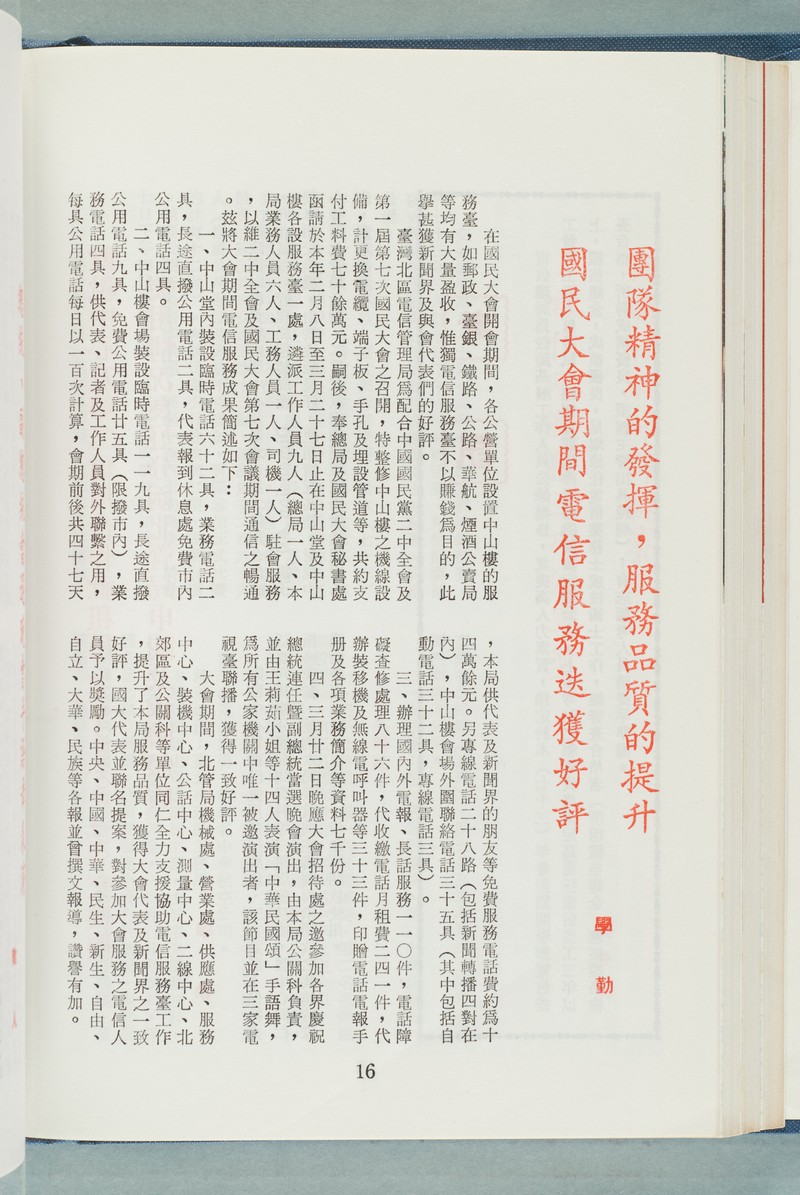 團隊精神的發揮，服務品質的提升
國民大會期間電信服務迭獲好評
學　勤
在國民大會開會期間，各公營單位設置中山樓的服
務臺，如郵政、臺銀、鐵路、公路、華航、煙酒公賣局
等均有大量盈收，惟獨電信服務臺不以賺錢爲目的，此
擧甚獲新聞界及與會代表們的好評。
臺灣北區電信管理局爲配合中國國民黨二中全會及
第一屆第七次國民大會之召開，特整修中山樓之機線設
備，計更換電纜、端子板、手孔及埋設管道等，共約支
付工料費七十餘萬元。嗣後，奉總局及國民大會秘書處
函請於本年二月八日至三月二十七日止在中山堂及中山
樓各設服務臺一處，遴派工作人員九人（總局一人、本
局業務人員六人、工務人員一人、司機一人）駐會服務
，以維二中全會及國民大會第七次會議期間通信之暢通
。玆將大會期間電信服務成果簡述如下：
一、中山堂內裝設臨時電話六十二具，業務電話二
具，長途直撥公用電話二具，代表報到休息處免費市內
公用電話四具。
二、中山樓會場裝設臨時電話一一九具，長途直撥
公用電話九具，免費公用電話廿五具（限撥市內），業
務電話四具，供代表、記者及工作人員對外聯繫之用，
每具公用電話每日以一百次計算，會期前後共四十七天
，本局供代表及新聞界的朋友等免費服務電話費約爲十
四萬餘元。另專線電話二十八路（包括新聞轉播四對在
內），中山樓會場外圍聯絡電話三十五具（其中包括自
動電話三十二具，專線電話三具）。
三、辦理國內外電報、長話服務一一〇件，電話障
礙查修處理八十六件，代收繳電話月租費二四一件，代
辦裝移機及無線電呼叫器等三十三件，印贈電話電報手
册及各項業務簡介等資料七千份。
四、三月廿二日晚應大會招待處之邀參加各界慶祝
總統連任暨副總統當選晚會演出，由本局公關科負責，
並由王莉茹小姐等十四人表演「中華民國頌」手語舞，
爲所有公家機關中唯一被邀演出者，該節目並在三家電
視臺聯播，獲得一致好評。
大會期間，北管局機械處、營業處、供應處、服務
中心、裝機中心、公話中心、測量中心、二線中心、北
郊區及公關科等單位同仁全力支援協助電信服務臺工作
，提升了本局服務品質，獲得大會代表及新聞界之一致
好評，國大代表並聯名提案，對參加大會服務之電信人
員予以獎勵。中央、中國、中華、民生、新生、自由、
自立、大華、民族等各報並曾撰文報導，讚譽有加。
16